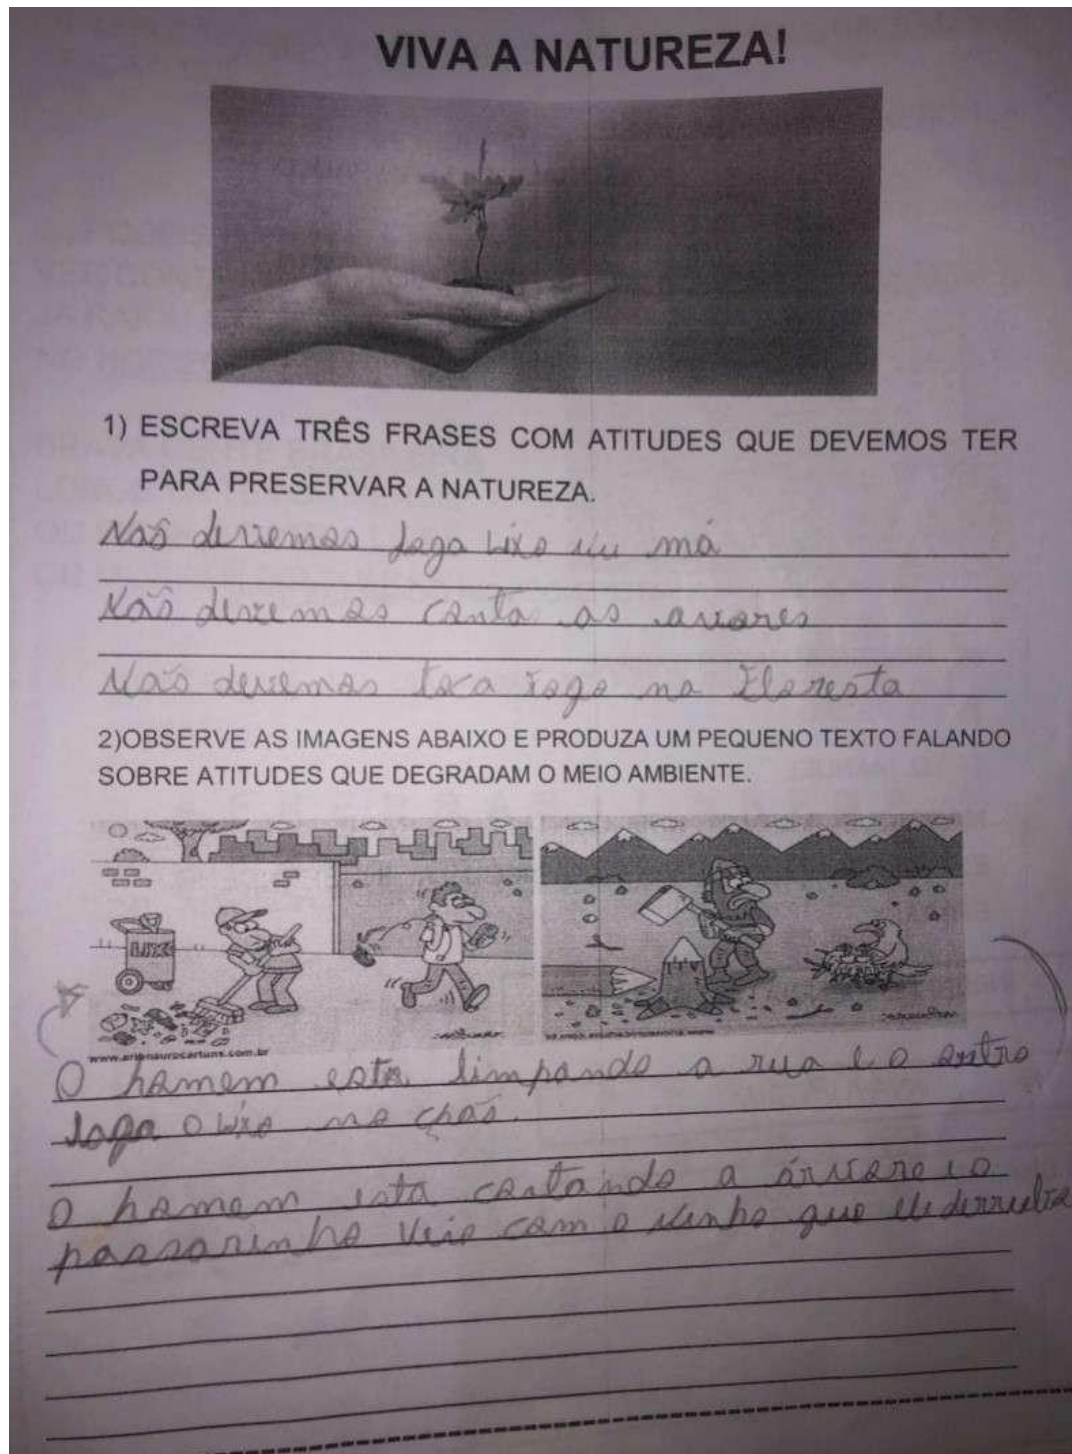 VIVA A NATUREZA!
1) ESCREVA TRÊS FRASES COM ATITUDES QUE DEVEMOS TER
PARA PRESERVAR A NATUREZA.
Não devemos joga lixo nu má
Não devemos conta as avores
Não devemos toca fogo na Floresta
2)OBSERVE AS IMAGENS ABAIXO E PRODUZA UM PEQUENO TEXTO FALANDO
SOBRE ATITUDES QUE DEGRADAM O MEIO AMBIENTE.
LIXO
www.arionaurocartuns.com.br
O homem esta limpando a rua e o outro
Joga o lixo no chão.
O homem esta contando a árvore e o
passarinho veio com o ninho que ele derruba